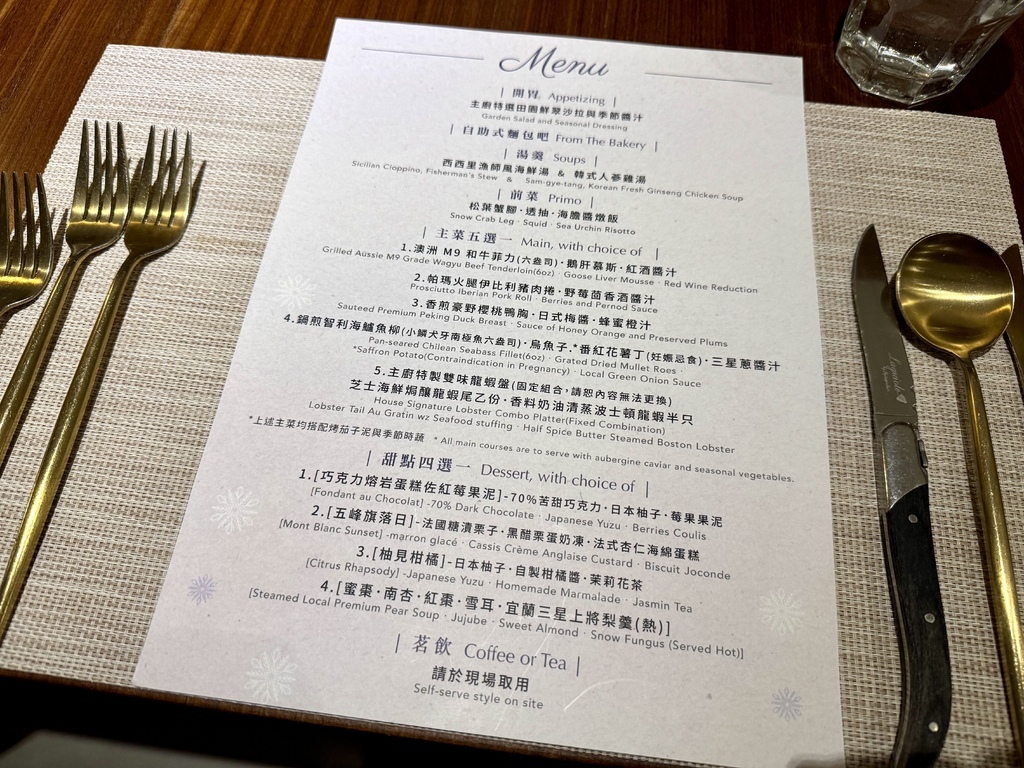 Menu
| 開胃 Appetizing |
主廚特選田園鮮翠沙拉與季節醬汁
Garden Salad and Seasonal Dressing
| 自助式麵包吧 From The Bakery |
| 湯羹 Soups |
西西里漁師風海鮮湯 & 韓式人蔘雞湯
Sicilian Cioppino, Fisherman's Stew & Sam-gye-tang, Korean Fresh Ginseng Chicken Soup
| 前菜 Primo |
松葉蟹腳·透抽·海膽醬燉飯
Snow Crab Leg · Squid · Sea Urchin Risotto
| 主菜五選一 Main, with choice of |
1.澳洲 M9 和牛菲力(六盎司)·鵝肝慕斯·紅酒醬汁
Grilled Aussie M9 Grade Wagyu Beef Tenderloin(6oz) · Goose Liver Mousse · Red Wine Reduction
2.帕瑪火腿伊比利豬肉捲·野莓茴香酒醬汁
Prosciutto Iberian Pork Roll · Berries and Pernod Sauce
3.香煎豪野櫻桃鴨胸·日式梅醬·蜂蜜橙汁
Sauteed Premium Peking Duck Breast · Sauce of Honey Orange and Preserved Plums
4.鍋煎智利海鱸魚柳(小鱗犬牙南極魚六盎司)·烏魚子·*番紅花薯丁(妊娠忌食)·三星蔥醬汁
Pan-seared Chilean Seabass Fillet(6oz) · Grated Dried Mullet Roes ·
*Saffron Potato(Contraindication in Pregnancy) · Local Green Onion Sauce
5.主廚特製雙味龍蝦盤(固定組合,請恕內容無法更換)
芝士海鮮焗釀龍蝦尾乙份·香料奶油清蒸波士頓龍蝦半只
House Signature Lobster Combo Platter(Fixed Combination)
Lobster Tail Au Gratin wz Seafood stuffing · Half Spice Butter Steamed Boston Lobster
*上述主菜均搭配烤茄子泥與季節時蔬 * All main courses are to serve with aubergine caviar and seasonal vegetables.
| 甜點四選一 Dessert, with choice of |
1.[巧克力熔岩蛋糕佐紅莓果泥]-70%苦甜巧克力·日本柚子·莓果果泥
[Fondant au Chocolat] -70% Dark Chocolate · Japanese Yuzu · Berries Coulis
2.[五峰旗落日]-法國糖漬栗子·黑醋栗蛋奶凍·法式杏仁海綿蛋糕
[Mont Blanc Sunset] -marron glacé · Cassis Crème Anglaise Custard · Biscuit Joconde
3.[柚見柑橘]-日本柚子·自製柑橘醬·茉莉花茶
[Citrus Rhapsody] -Japanese Yuzu · Homemade Marmalade · Jasmin Tea
4.[蜜棗·南杏·紅棗·雪耳·宜蘭三星上將梨羹(熱)]
[Steamed Local Premium Pear Soup · Jujube · Sweet Almond · Snow Fungus (Served Hot)]
| 茗飲 Coffee or Tea |
請於現場取用
Self-serve style on site